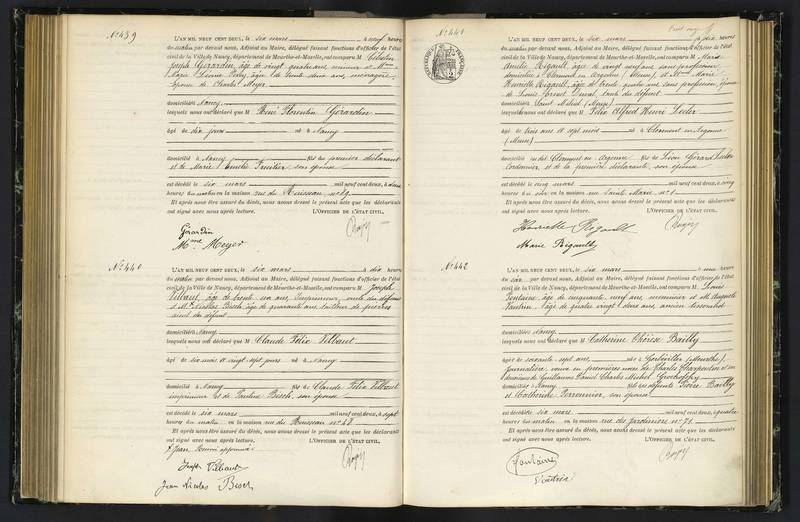 No 439
L'AN MIL NEUF CENT DEUX, le six mars à neuf heures
du matin par devant nous, Adjoint au Maire, délégué faisant fonctions d'officier de l'état
civil de la Ville de Nancy, département de Meurthe-et-Moselle, ont comparu M. Célestin
Joseph Gérardin, âgé de vingt quatre ans, mineur et Mme
Marie Louise âgée de trente deux ans, ménagère
épouse de Charles Meyer
domiciliés à Nancy
lesquels nous ont déclaré que M René Florentin Gérardin
âgé de dix jours né à Nancy
domicilié à Nancy fils du premier déclarant
et de Marie Emélie son épouse
est décédé le six mars mil neuf cent deux, à
heures du matin en la maison rue du Ruisseau no 49
Et après nous être assuré du décès, nous avons dressé le présent acte que les déclarants
ont signé avec nous après lecture. L'OFFICIER DE L'ÉTAT CIVIL,
Gérardin
Mme Meyer
No 440
L'AN MIL NEUF CENT DEUX, le six mars à dix heures
du matin par devant nous, Adjoint au Maire, délégué faisant fonctions d'officier de l'état
civil de la Ville de Nancy, département de Meurthe-et-Moselle, ont comparu M. Joseph
Vilbaut, âgé de trente un ans, imprimeur, oncle du défunt
et M. Nicolas Besch âgé de quarante ans, tailleur de pierres
aïeul du défunt
domiciliés à Nancy
lesquels nous ont déclaré que M Claude Félix Vilbaut
âgé de six mois et vingt-sept jours né à Nancy
domicilié à Nancy fils de Claude Félix Vilbaut
imprimeur et de Pauline Besch, son épouse
est décédé le six mars mil neuf cent deux, à sept
heures du matin en la maison rue du Ruisseau no 48
Et après nous être assuré du décès, nous avons dressé le présent acte que les déclarants
ont signé avec nous après lecture. L'OFFICIER DE L'ÉTAT CIVIL,
Jean
Joseph Vilbaut
Jean Nicolas Besch
No 441
L'AN MIL NEUF CENT DEUX, le six mars à dix heures
du matin par devant nous, Adjoint au Maire, délégué faisant fonctions d'officier de l'état
civil de la Ville de Nancy, département de Meurthe-et-Moselle, ont comparu M. Marie
Amélie Rigault, âgée de vingt ans, sans profession
domiciliée à Clermont en Argonne (Meuse), et Mme Marie
Henriette Rigault, âgée de trente quatre ans sans profession, épouse
de Louis Ernest Duval, tante du défunt
domiciliée à Saint Mihiel (Meuse)
lesquels nous ont déclaré que M Félix Alfred Henri Leder
âgé de trois ans et sept mois né à Clermont en Argonne
(Meuse)
domicilié au dit Clermont en Argonne fils de Léon Gérard Leder
cordonnier, et de la première déclarante, son épouse
est décédé le cinq mars mil neuf cent deux, à cinq
heures du soir en la maison rue Sainte Marie no 1
Et après nous être assuré du décès, nous avons dressé le présent acte que les déclarants
ont signé avec nous après lecture. L'OFFICIER DE L'ÉTAT CIVIL,
Henriette Rigault
Marie Rigault
No 442
L'AN MIL NEUF CENT DEUX, le six mars à une heure
du soir par devant nous, Adjoint au Maire, délégué faisant fonctions d'officier de l'état
civil de la Ville de Nancy, département de Meurthe-et-Moselle, ont comparu M. Louis
Fontaine âgé de cinquante neuf ans, menuisier et M. Auguste
Vautrin, âgé de quatre vingt deux ans, ancien
domiciliés à Nancy
lesquels nous ont déclaré que M Catherine Thérèse Bailly
âgée de soixante sept ans née à Gerbéviller (Meurthe)
journalière, veuve en premières noces de Charles Charpentier et en
deuxièmes de Guillaume Daniel Charles Michel
domiciliée à Nancy fille des défunts Pierre Bailly
et Catherine Perronnier, son épouse
est décédée le six mars mil neuf cent deux, à quatre
heures du matin en la maison rue des Jardiniers no 71
Et après nous être assuré du décès, nous avons dressé le présent acte que les déclarants
ont signé avec nous après lecture. L'OFFICIER DE L'ÉTAT CIVIL,
Fontaine
Vautrin